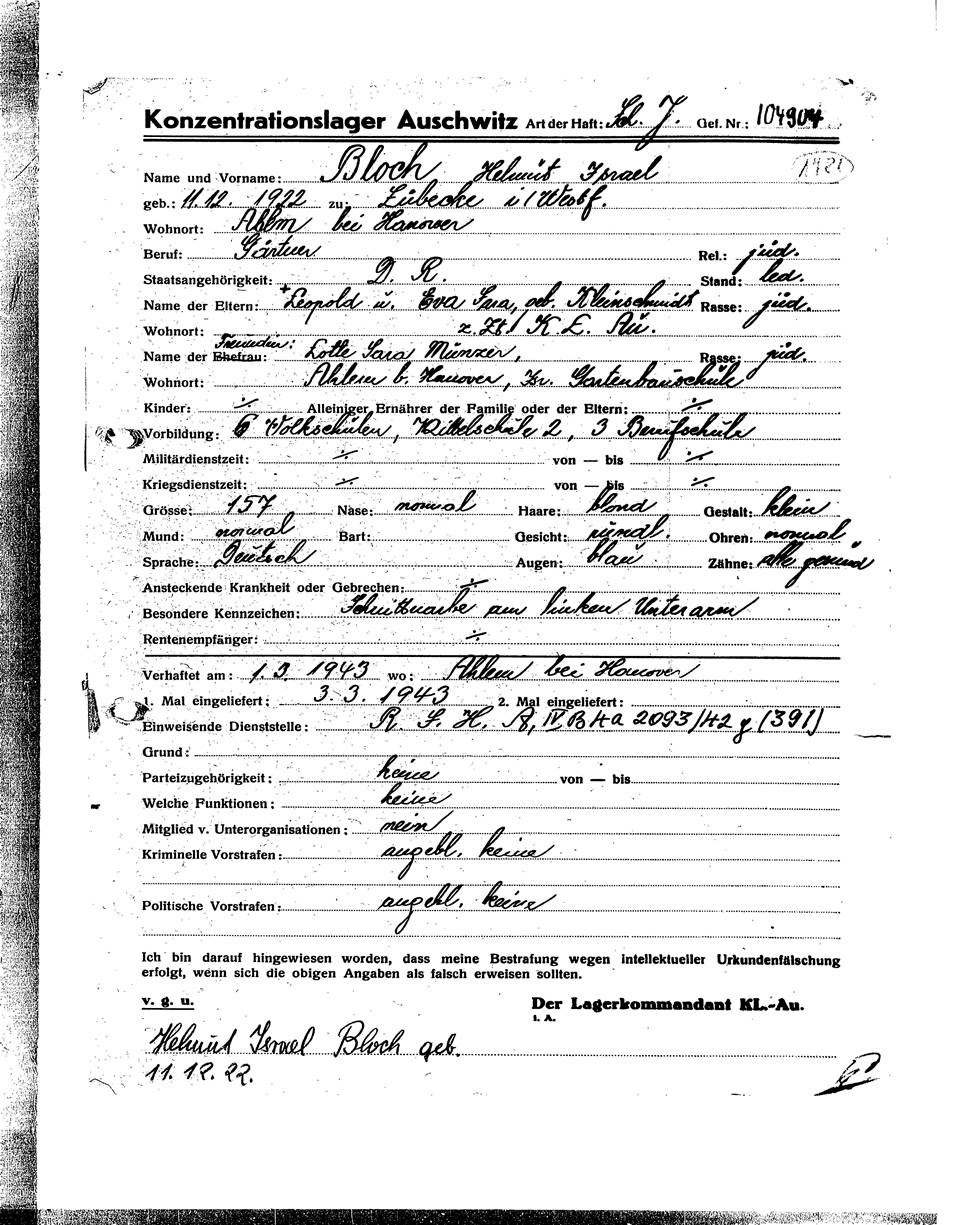 Konzentrationslager Auschwitz Art der Haft: Sch. J. Gef. Nr.: 104904
Name und Vorname: Bloch Helmut Israel
geb.: 11.12. 1922 zu: Lübecke i/Westf.
Wohnort: Ahlem bei Hanover
Beruf: Gärtner Rel.: jüd.
Staatsangehörigkeit: D. R. Stand: led.
Name der Eltern: + Leopold u. Eva Sara, geb. Kleinschmidt Rasse: jüd.
Wohnort: z. Zt. K. L. Au.
Freundin:
Name der Ehefrau: Lotte Sara Münzer, Rasse: jüd.
Wohnort: Ahlem b. Hanover, Isr. Gartenbauschule
Kinder: ·/. Alleiniger Ernährer der Familie oder der Eltern: ·/.
Vorbildung: 6 Volkschulen, Mittelschule 2, 3 Berufschule
Militärdienstzeit: ·/. von — bis ·/.
Kriegsdienstzeit: ·/. von — bis ·/.
Grösse: 157 Nase: normal Haare: blond Gestalt: klein
Mund: normal Bart: Gesicht: rundl. Ohren: normal
Sprache: Deutsch Augen: blau Zähne: alle gesund
Ansteckende Krankheit oder Gebrechen: ·/.
Besondere Kennzeichen: Schnittnarbe am linken Unterarm
Rentenempfänger: ·/.
Verhaftet am: 1.3. 1943 wo: Ahlem bei Hanover
1. Mal eingeliefert: 3.3. 1943 2. Mal eingeliefert:
Einweisende Dienststelle: R. S. H. A, IV B4a 2093/42 g (391)
Grund:
Parteizugehörigkeit: keine von — bis
Welche Funktionen: keine
Mitglied v. Unterorganisationen: nein
Kriminelle Vorstrafen: angebl. keine
Politische Vorstrafen: angebl. keine
Ich bin darauf hingewiesen worden, dass meine Bestrafung wegen intellektueller Urkundenfälschung
erfolgt, wenn sich die obigen Angaben als falsch erweisen sollten.
v. g. u. Der Lagerkommandant KL.-Au.
i. A.
Helmut Israel Bloch geb.
11. 12. 22.